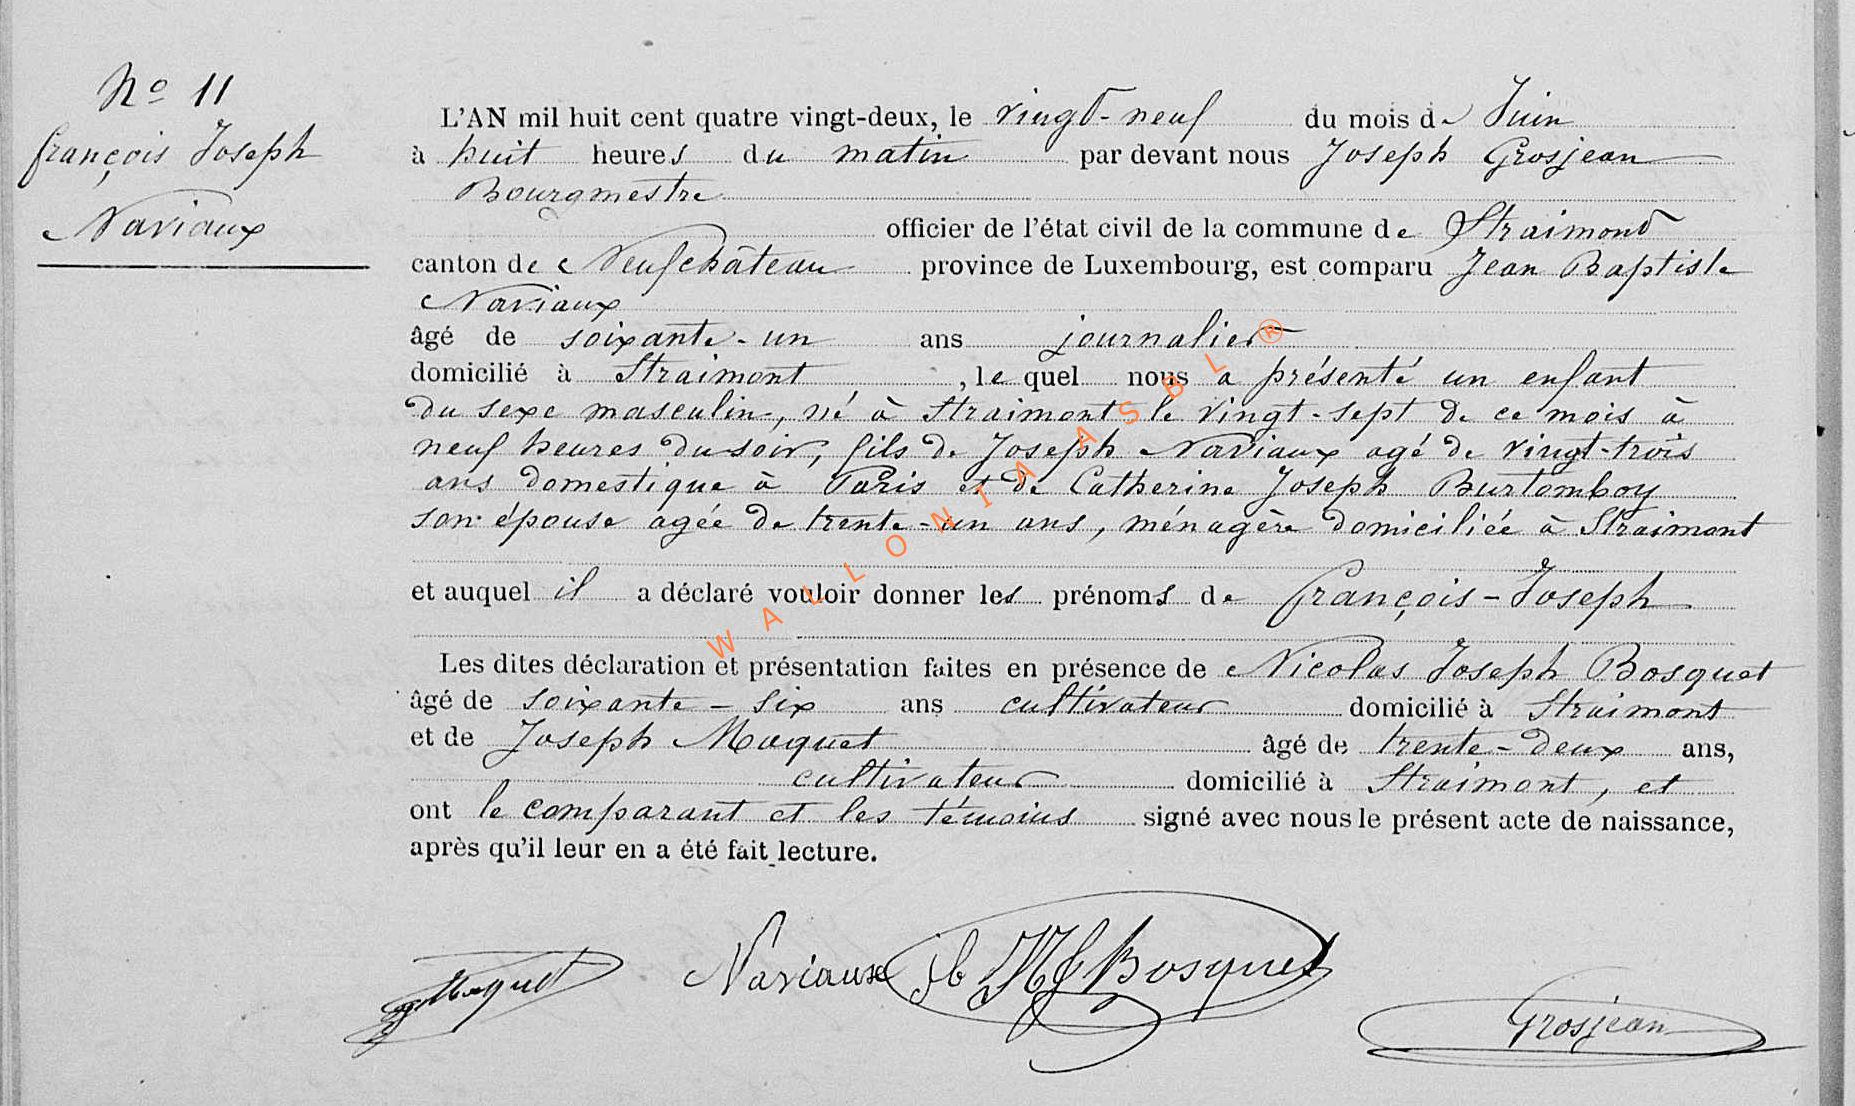 No 11
François Joseph
Naviaux
L'AN mil huit cent quatre vingt-deux, le vingt-neuf du mois de Juin
à huit heures du matin par devant nous Joseph Grosjean
Bourgmestre
officier de l'état civil de la commune de Straimont
canton de Neufchâteau province de Luxembourg, est comparu Jean Baptiste
Naviaux
âgé de soixante-un ans journalier
domicilié à Straimont, le quel nous a présenté un enfant
du sexe masculin, né à Straimont le vingt-sept de ce mois à
neuf heures du soir, fils de Joseph Naviaux agé de vingt-trois
ans domestique à Paris et de Catherine Joseph Burtomboy
son épouse agée de trente-un ans, ménagère domiciliée à Straimont
et auquel il a déclaré vouloir donner les prénoms de François-Joseph
Les dites déclaration et présentation faites en présence de Nicolas Joseph Bosquet
âgé de soixante-six ans cultivateur domicilié à Straimont
et de Joseph Maquet âgé de trente-deux ans,
cultivateur domicilié à Straimont, et
ont le comparant et les témoins signé avec nous le présent acte de naissance,
après qu'il leur en a été fait lecture.
Maquet Naviaux jb NJ Bosquet
Grosjean
WALLONIA ASBL ®